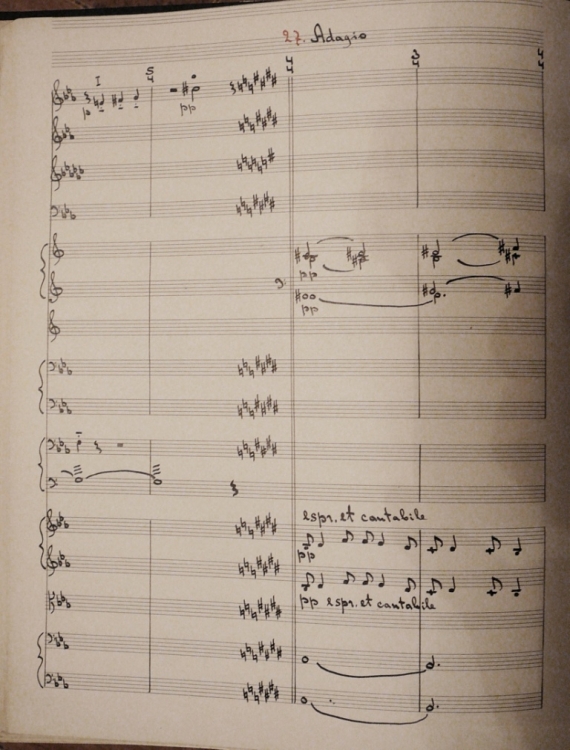 27. Adagio
I
5
4
4
4
3
4
4
4
p
pp
pp
pp
espr. et cantabile
pp
pp espr. et cantabile